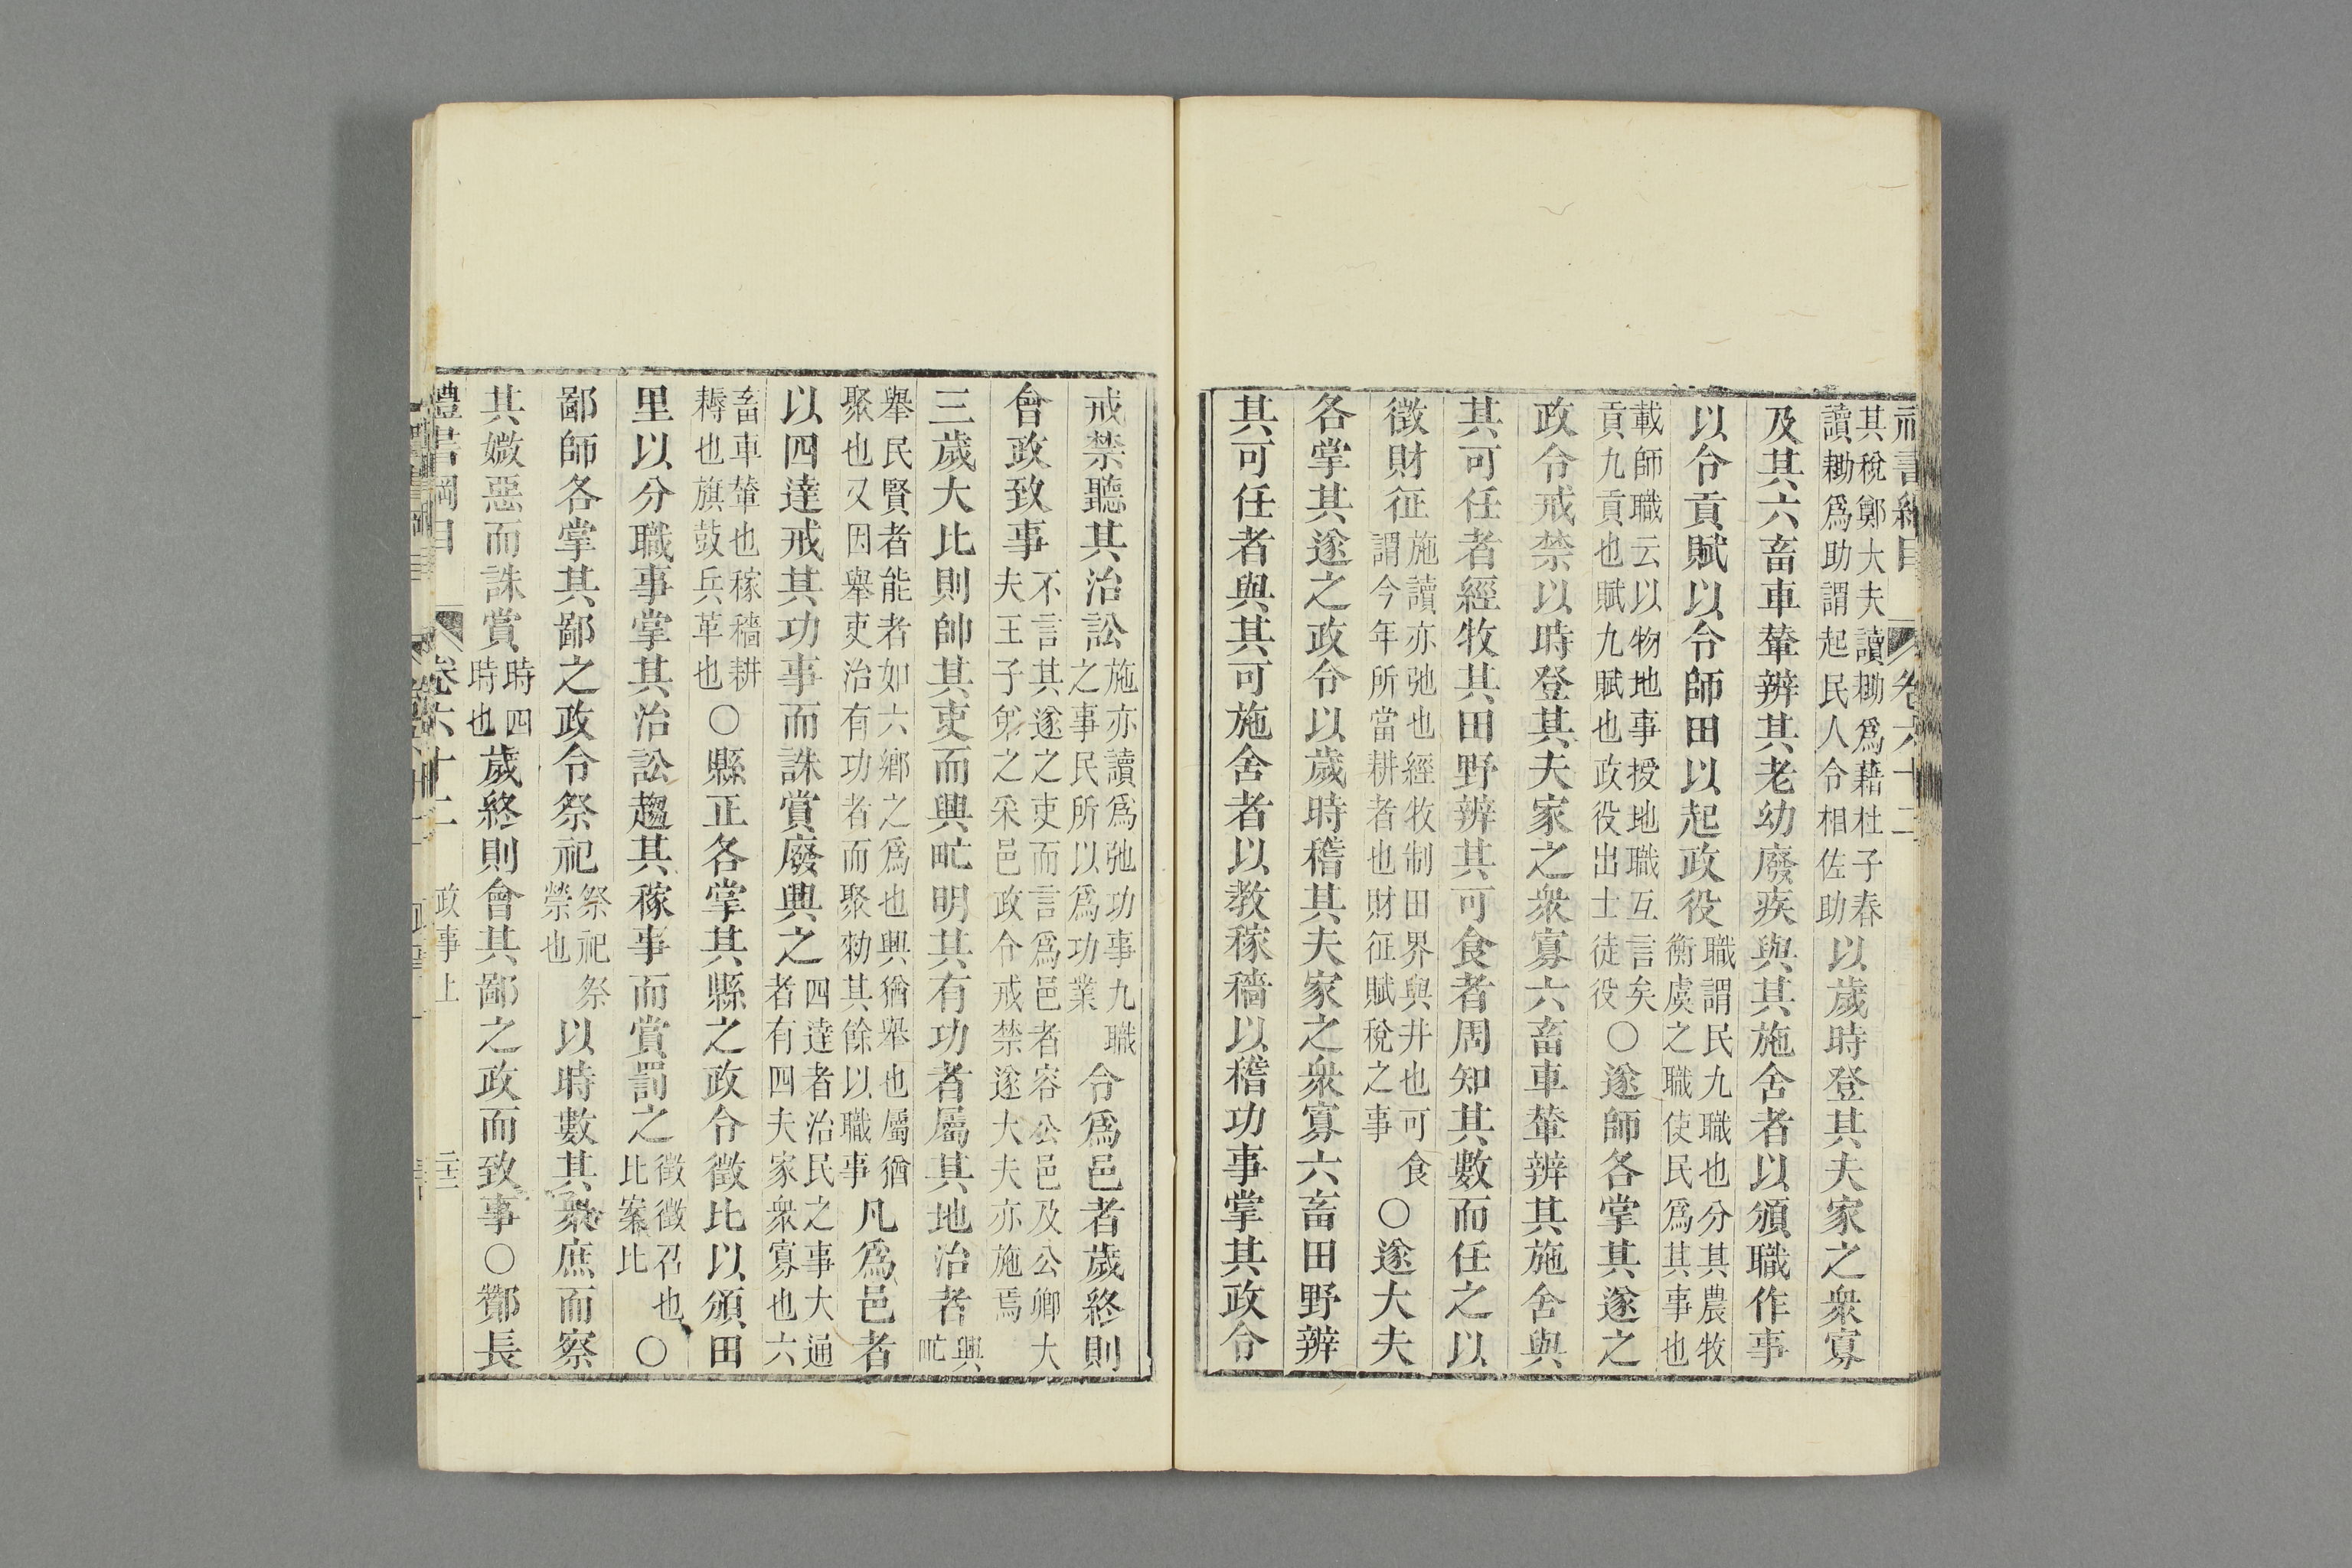 其稅鄭大夫讀耡爲藉杜子春
讀耡爲助謂起民人令相佐助以歲時登其夫家之衆寡
及其六畜車輦辨其老幼廢疾與其施舍者以頒職作事
以令貢賦以令師田以起政役職謂民九職也分其農牧衡虞之職使民爲其事也
載師職云以物地事授地職互言矣
貢九貢也賦九賦也政役出士徒役〇遂師各掌其遂之
政令戒禁以時登其夫家之衆寡六畜車輦辨其施舍與
其可任者經牧其田野辨其可食者周知其數而任之以
徵財征施讀亦弛也經牧制田界與井也可食謂今年所當耕者也財征賦稅之事〇遂大夫
各掌其遂之政令以歲時稽其夫家之衆寡六畜田野辨
其可任者與其可施舍者以教稼穡以稽功事掌其政令
戒禁聽其治訟施亦讀爲弛功事九職之事民所以爲功業令爲邑者歲終則
會政致事不言其遂之吏而言爲邑者容公邑及公卿大夫王子弟之采邑政令戒禁遂大夫亦施焉
三歲大比則帥其吏而興甿明其有功者屬其地治者興甿
舉民賢者能者如六鄉之爲也興猶舉也屬猶
聚也又因舉吏治有功者而聚勑其餘以職事凡爲邑者
以四達戒其功事而誅賞廢興之四達者治民之事大通者有四夫家衆寡也六
畜車輦也稼穡耕
耨也旗鼓兵革也〇縣正各掌其縣之政令徵比以頒田
里以分職事掌其治訟趨其稼事而賞罰之徵徵召也比案比〇
鄙師各掌其鄙之政令祭祀祭祀祭禜也以時數其衆庶而察
其媺惡而誅賞時四時也歲終則會其鄙之政而致事〇酇長
禮書綱目 卷六十二 政事上